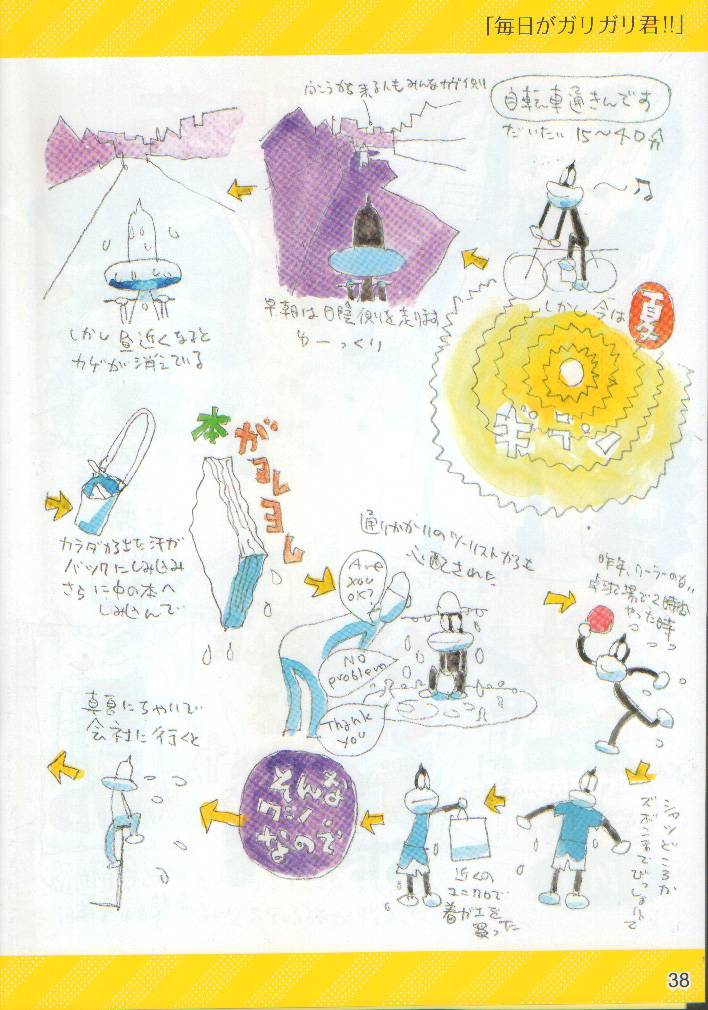 「毎日がガリガリ君!!」
自転車通きんです
だいたい 15〜40分
しかし今は
ギラン
向こうから来る人もみんなカゲ側
早朝は日陰側を走ります
ゆーっくり
しかし昼近くなると
カゲが消えている
カラダから出た汗が
バックにしみ込み
さらに中の本へ
しみ込んで
本が
ヨレヨレ
通りがかりのツーリストからも
心配された
Are
you
OK?
No
problem
Thank
you
昨年、クーラーのない
卓球場で2時間
やった時
シャツどころか
ズボンまでびっしょりで
近くの
ユニクロで
着がえを
買った
そんな
ワシ
なので
真夏にちゃりで
会社に行くと
38